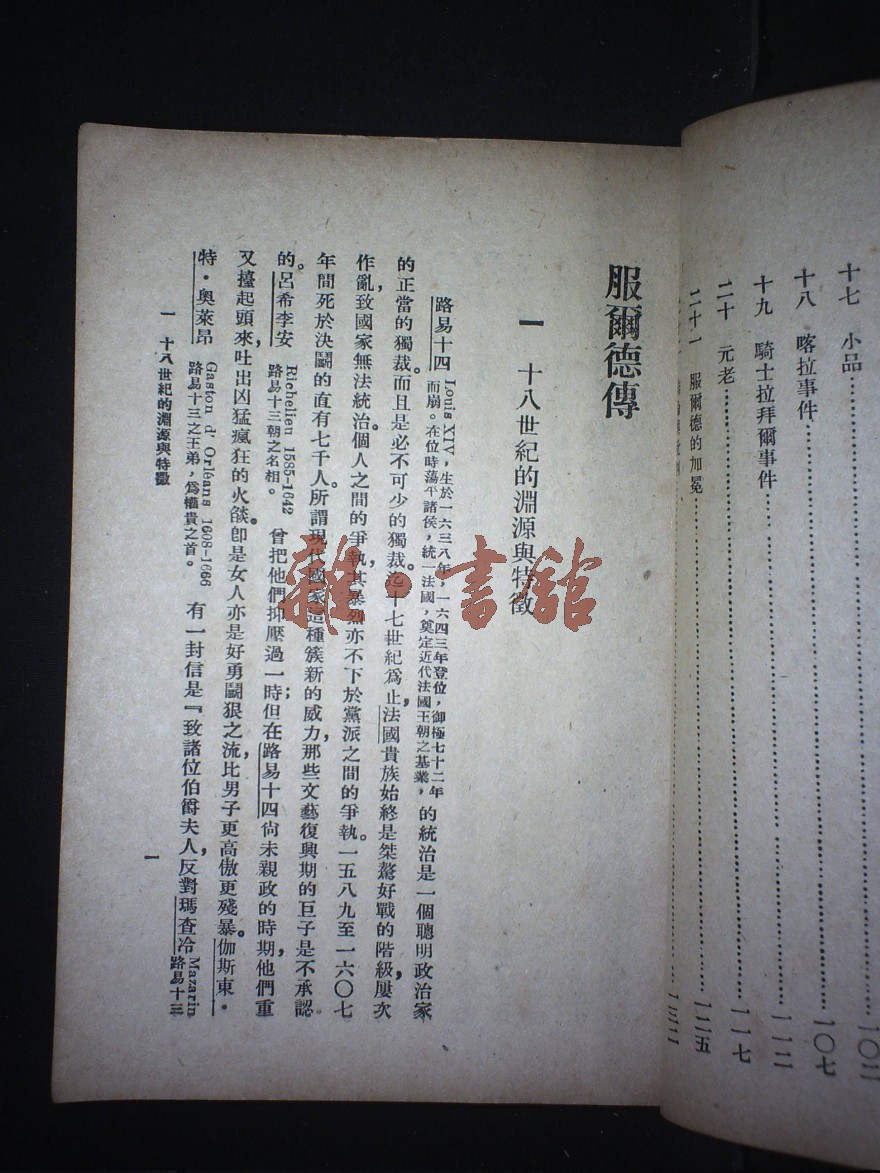 十七 小品 一〇二
十八 喀拉事件 一〇七
十九 騎士拉拜爾事件 一一二
二十 元老 一一七
二十一 服爾德的加冕 一二五
一三二
服爾德傳
一 十八世紀的淵源與特徵
路易十四 Louis XIV,生於一六三八年,一六四三年登位,御極七十二年而崩。在位時蕩平諸侯,統一法國,奠定近代法國王朝之基業, 的統治是一個聰明政治家
的正當的獨裁。而且是必不可少的獨裁。迄十七世紀爲止,法國貴族始終是桀驁好戰的階級,屢次
作亂,致國家無法統治。個人之間的爭執,其暴烈亦不下於黨派之間的爭執。一五八九至一六〇七
年間死於決鬭的直有七千人。所謂現代國家這種簇新的威力,那些文藝復興期的巨子是不承認
的。呂希李安 Richelieu 1585-1642 路易十三朝之名相。 曾把他們抑壓過一時;但在路易十四尙未親政的時期,他們重
又擡起頭來,吐出凶猛瘋狂的火燄。卽是女人亦是好勇鬭狠之流,比男子更高傲更殘暴。伽斯東·
特·奧萊昂 Gaston d'Orléans 1608-1666 路易十三之王弟,爲權貴之首。 有一封信是『致諸位伯爵夫人,反對瑪查冷 Mazarin 路易十三
一 十八世紀的淵源與特徵
一
雜·書館